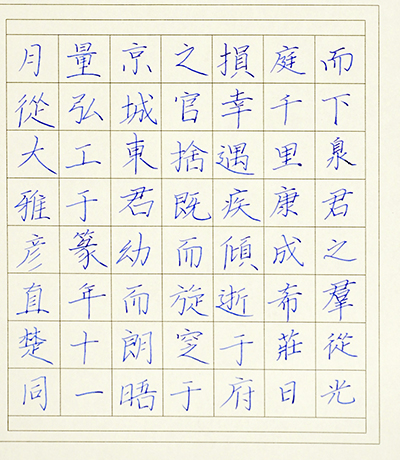 而下泉君之羣從光
庭千里康成希莊日
損幸遇疾傾逝于府
之官捨既而旋窆于
京城東君幼而朗晤
量弘工于篆年十一
月從大雅彥直楚同